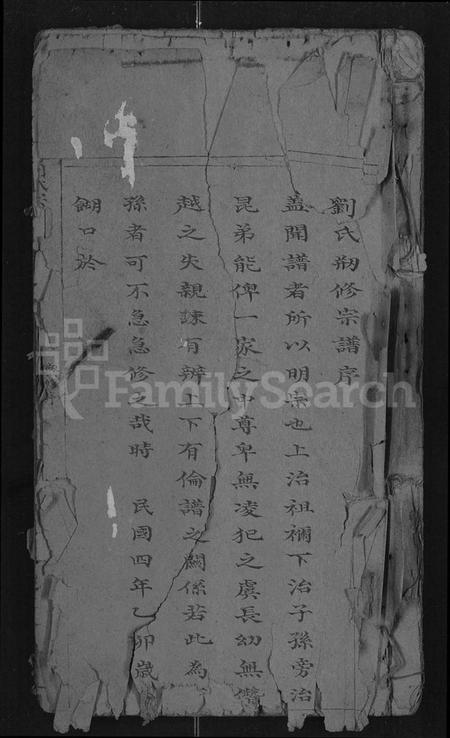 劉氏剏修宗譜序
蓋聞譜者所以明宗也上治祖禰下治子孫旁治
昆弟能俾一家之中尊卑無凌犯之虞長幼無僭
越之失親疎有辨上下有倫譜之關係若此為
孫者可不急急修之哉時 民國四年乙卯歲
餬口於
FamilySearch